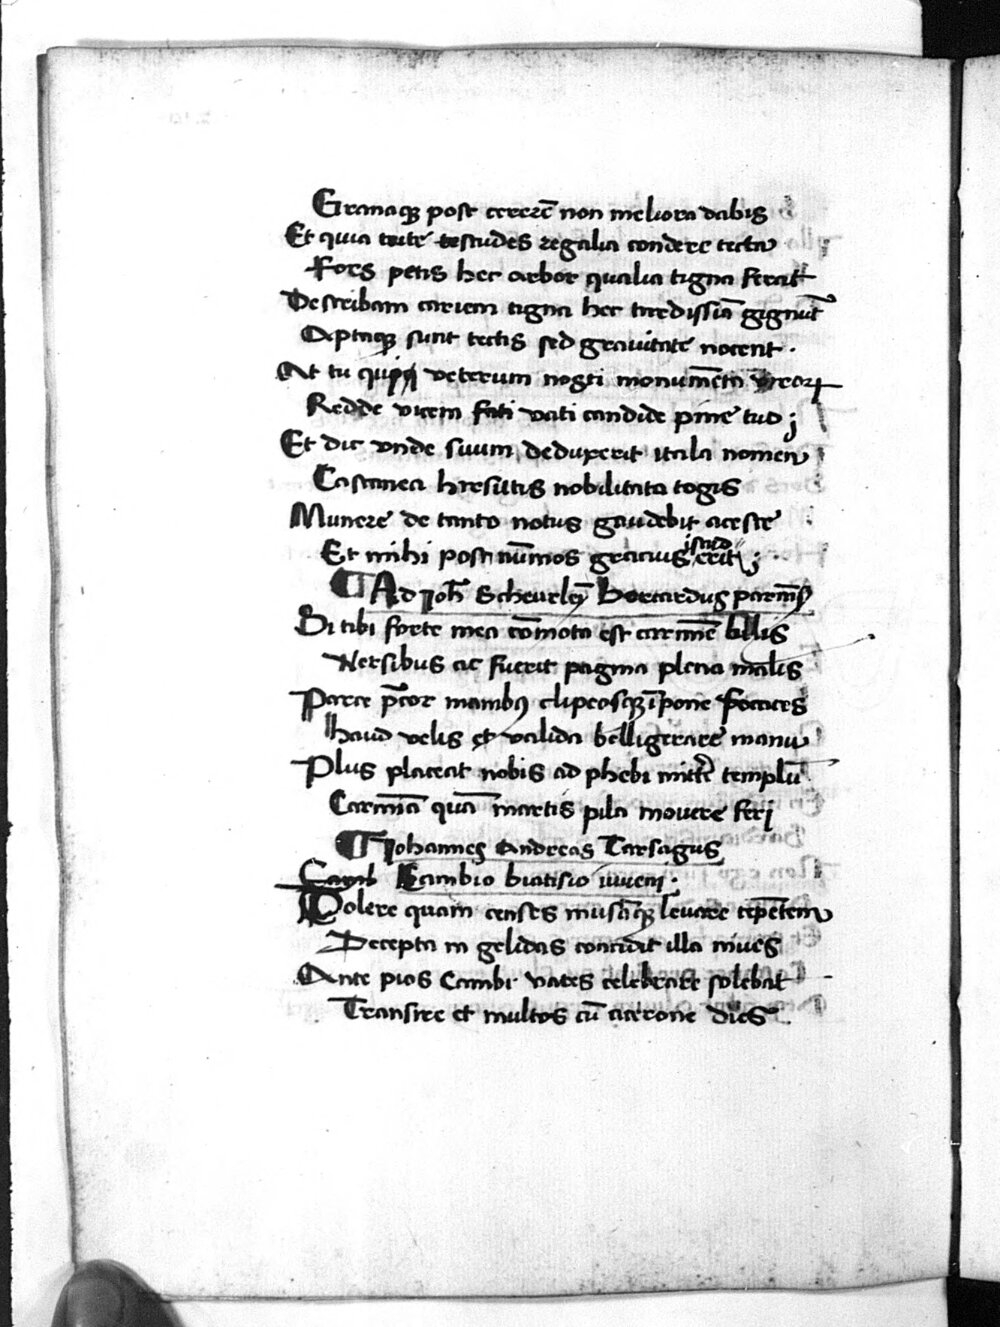 Granaqꝫ post cererē non meliora dabis
Et quia tute testudes regalia condere tecta
Fors petis hec arbor qualia tigna ferat
Describam cariem tigna hec tardissīa gignūt
Aptaqꝫ sunt tectis sed grauitate nocent .
At tu veterum nosti monumēta
Redde vicem fati vati candide pīne tuo ;
Et dic vnde suum deduxerit itala nomen
Castanea hirsutis nobilitata togis
Munere de tanto notus gaudebit aceste
Et mihi post nūmos gracius istud erit ;
¶ Ad Joh̄ Scheurleȳ Bernardus parm̄s
Si tibi forte mea cōmota est carmīe bilis
Versibus ac fuerit pagina plena malis
Parce p̄cor manibꝰ clipeosqꝫ īpone
haud velis et valida belligerare manu
Plus placeat nobis ad phebi mittē templū
Carmīa quā martis pila mouere feri
¶ Johannes Andreas Tarsagus
Cambio biatisio iuueni :
Dolere quam censes musāqꝫ leuare tepētem
Decepta in gelidas concidit illa niues
Ante pios Cambi vates celebrare solebat
Transire et multos cū cicerone dies